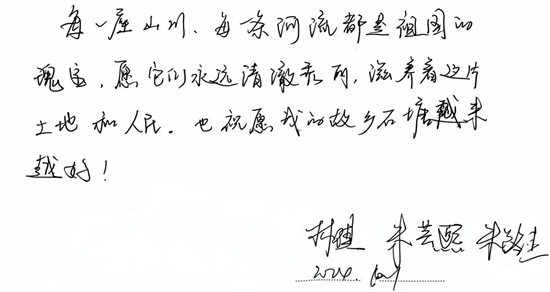 每一座山川、每条河流都是祖国的
瑰宝,愿它们永远清澈秀丽,滋养着这片
土地和人民。也祝愿我的故乡石塘越来
越好!
林健 朱芸熙
2024.